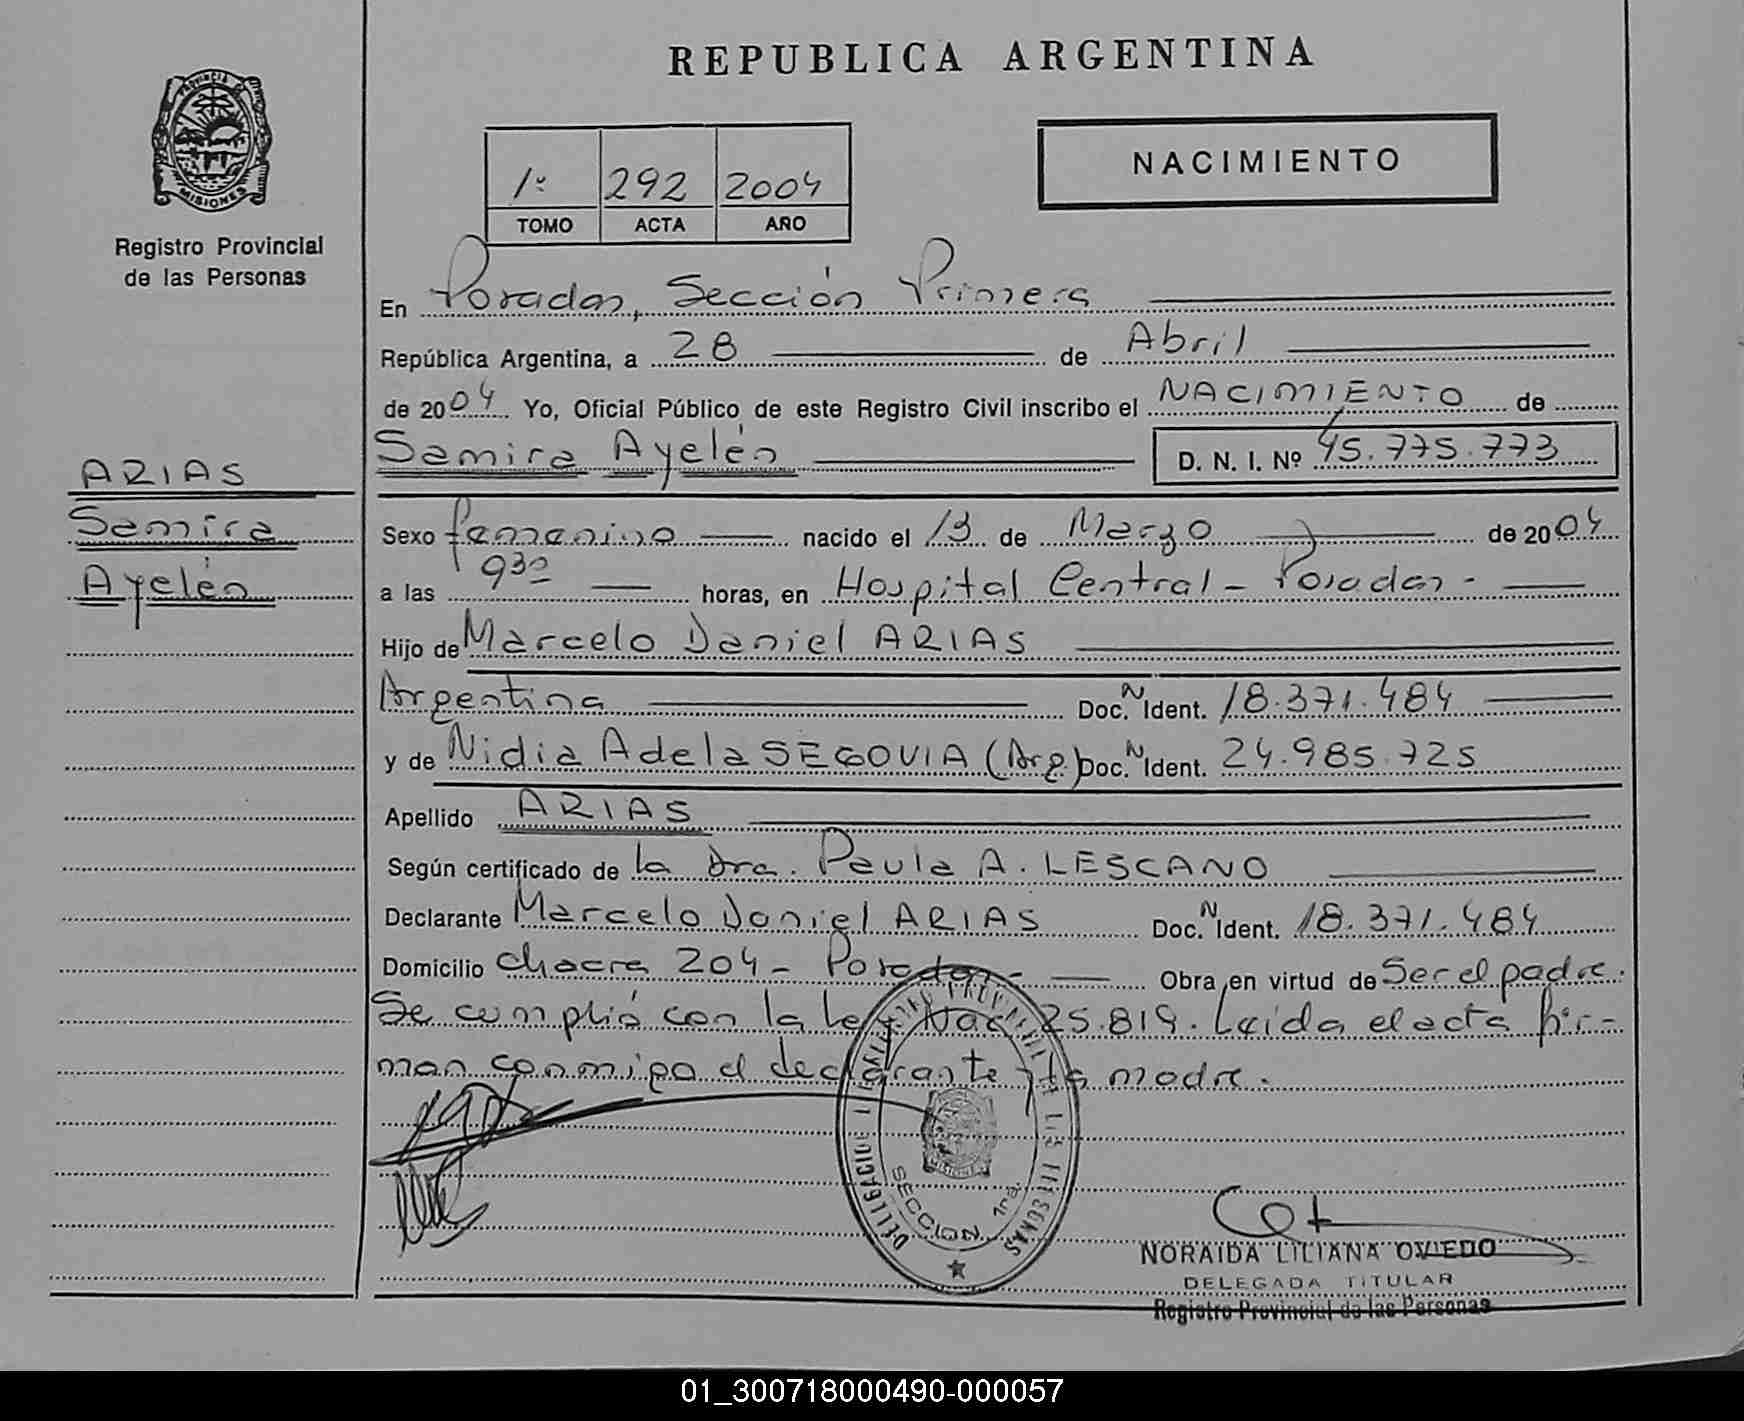 REPUBLICA ARGENTINA
PROVINCIA DE
MISIONES
Registro Provincial
de las Personas
1º 292 2004
TOMO ACTA AÑO
NACIMIENTO
En Posadas, Sección Primera
República Argentina, a 28 de Abril
de 2004 Yo, Oficial Público de este Registro Civil inscribo el NACIMIENTO de
Samira Ayelén D. N. I. Nº 45.775.773
ARIAS
Samira
Ayelén
Sexo femenino nacido el 13 de Marzo de 2004
a las 9³⁰ horas, en Hospital Central - Posadas -
Hijo de Marcelo Daniel ARIAS
Argentina Doc. N Ident. 18.371.484
y de Nidia Adela SEGOVIA (Arg.) Doc. N Ident. 24.985.725
Apellido ARIAS
Según certificado de la Dra. Paula A. LESCANO
Declarante Marcelo Daniel ARIAS Doc. N Ident. 18.371.484
Domicilio chacra 204 - Posadas - Obra en virtud de Ser el padre.
Se cumplió con la Ley Nac 25.819. Leída el acta fir-
man conmigo el declarante y la madre.
SECCION 1ra.
MISIONES
NORAIDA LILIANA OVIEDO
DELEGADA TITULAR
Registro Provincial de las Personas
01_300718000490-000057